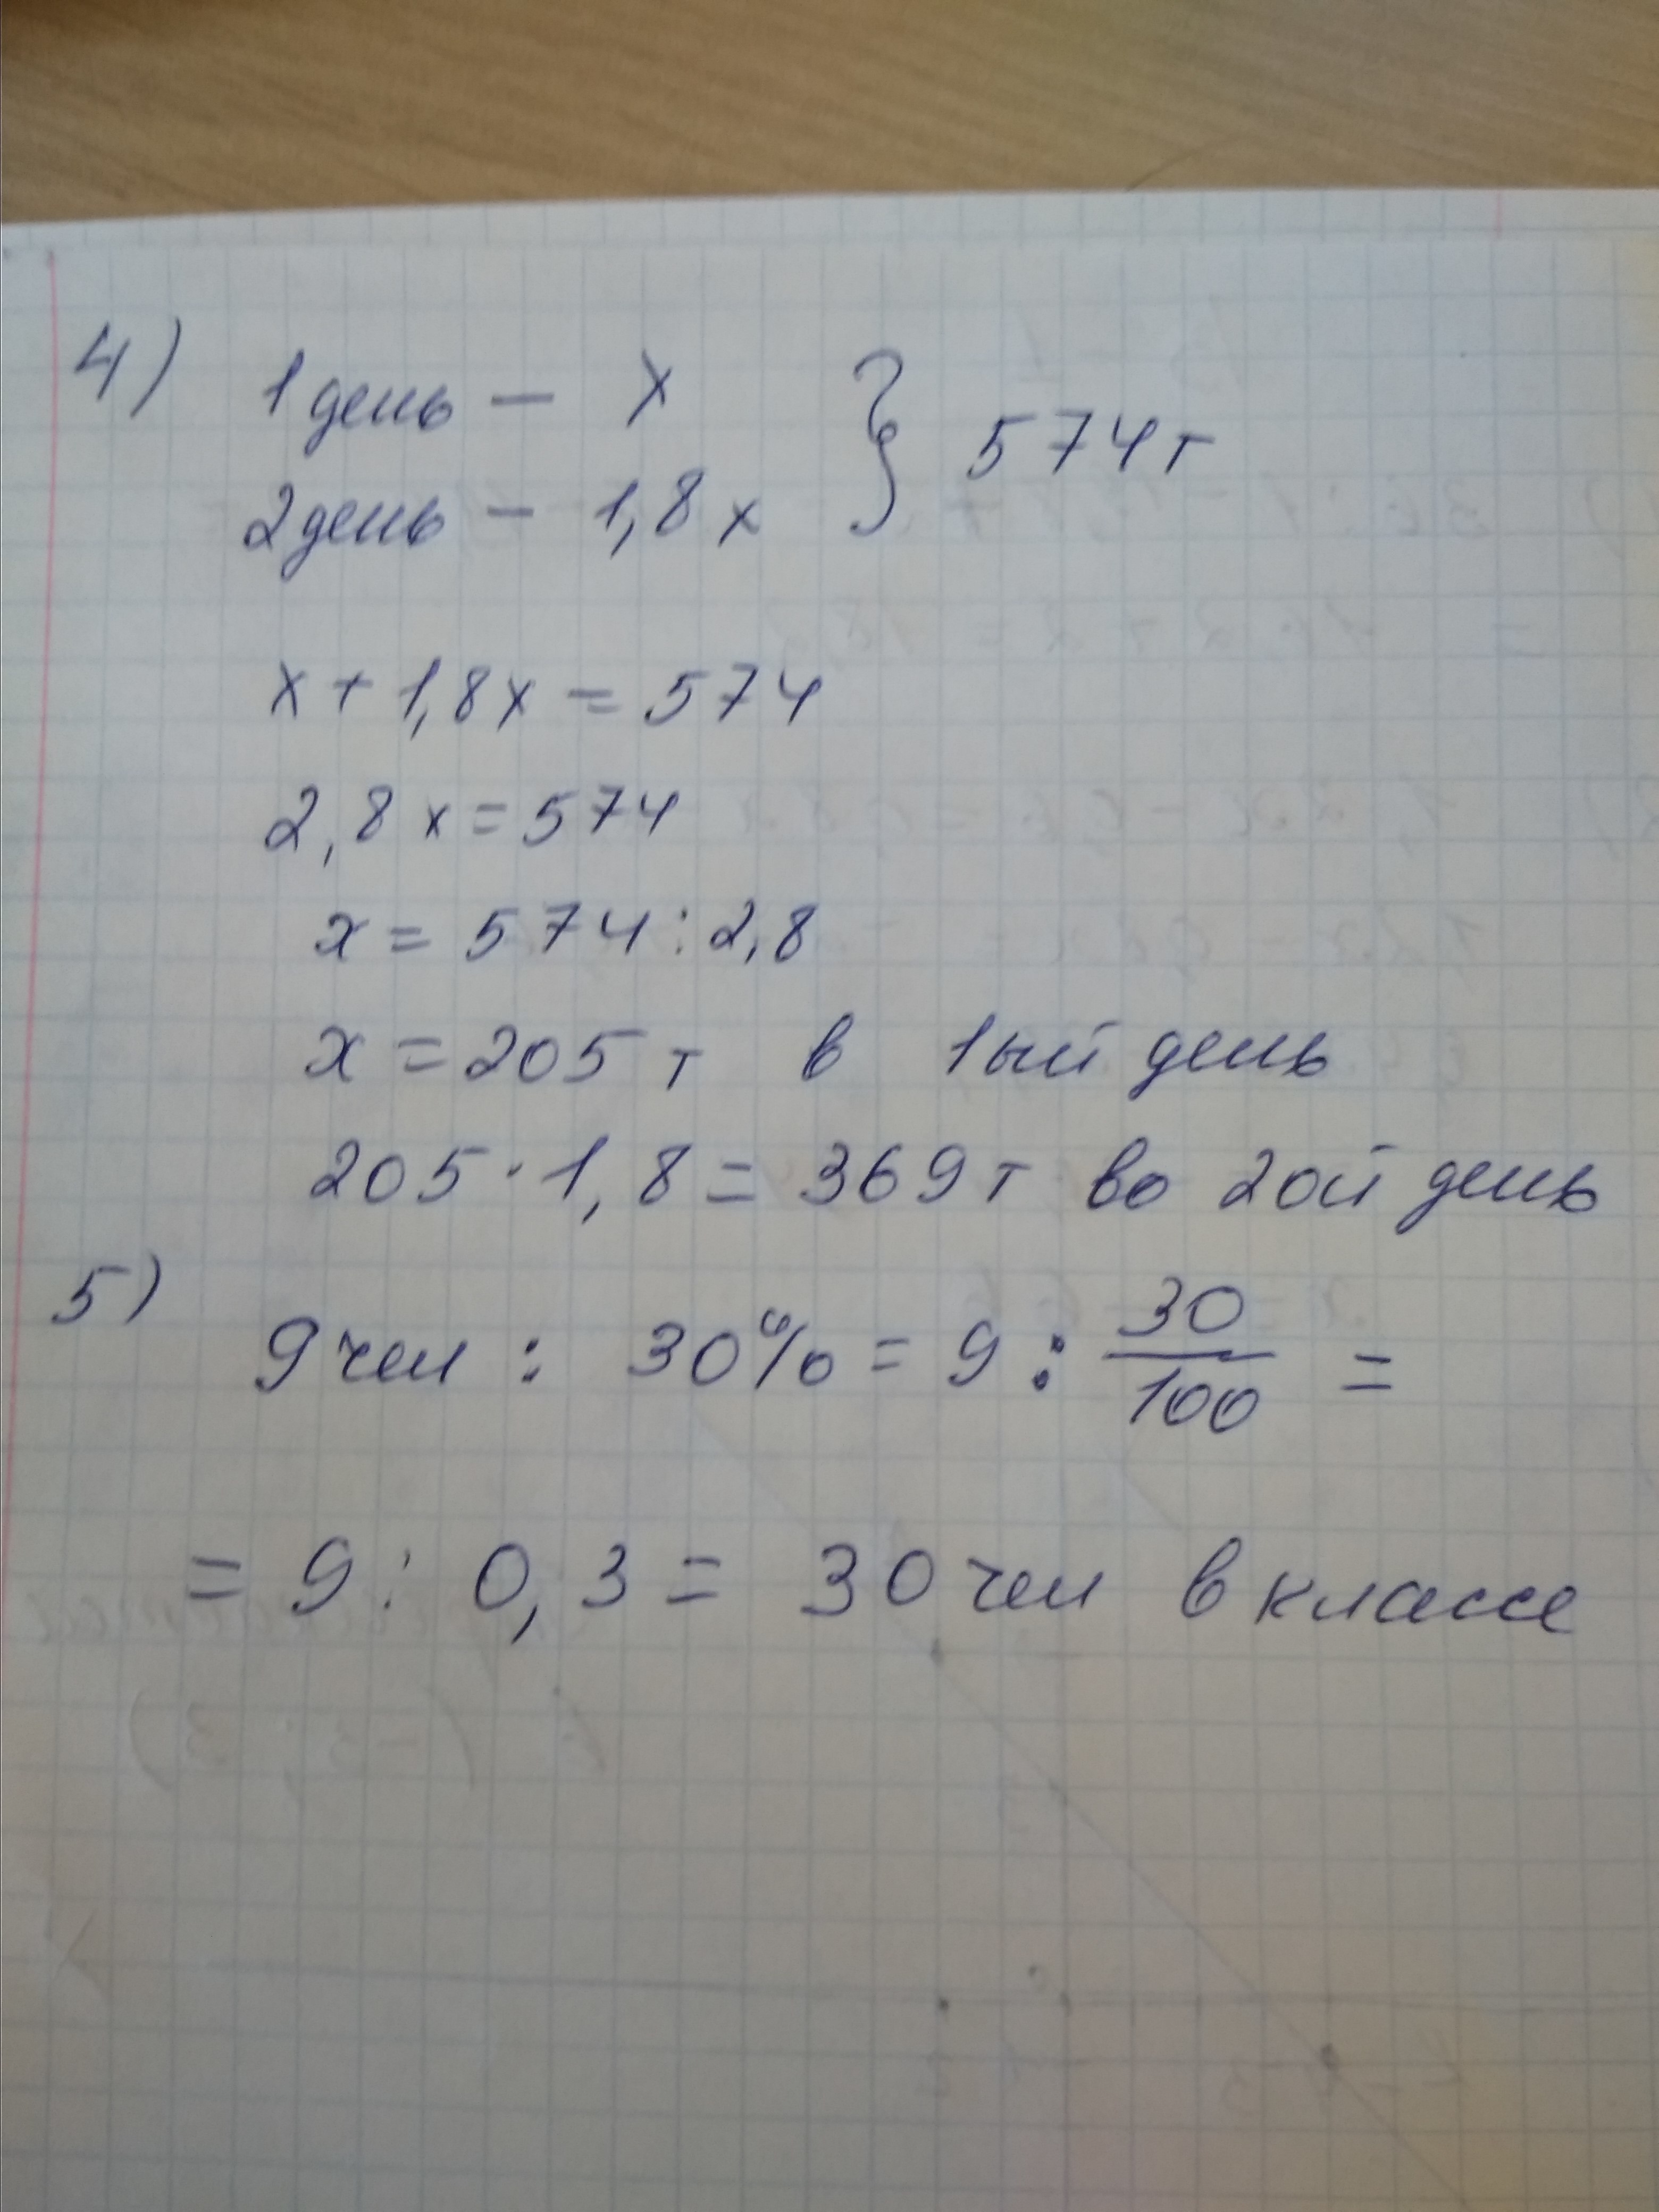 4) 1 день – x } 574 т
2 день – 1,8 x
x + 1,8x = 574
2,8 x = 574
x = 574 : 2,8
x = 205 т в 1ый день
205 · 1,8 = 369 т во 2ой день
5) 9 чел : 30% = 9 : 30/100 =
= 9 : 0,3 = 30 чел в классе